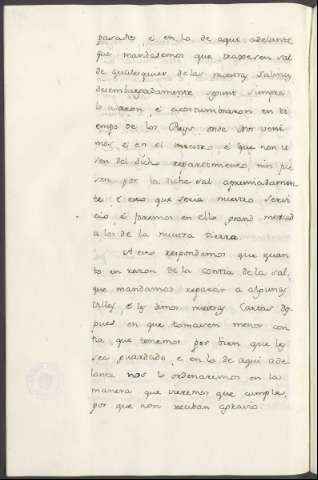 pasado, é en lo de aqui adelante
que mandasemos que traxiesen sal
de qualesquier de las nuestras Salinas
desembargadamente segunt siempre
lo usaron, é acostumbraron en tiempo
de los Reys onde Nos venimos,
é en el nuestro, é que non usen
del dicho repartimiento, nin pasen
por la dicha sal apremiadamente
é en esto que seria nuestro servicio
é fariemos en ello grand merced
a los de la nuestra tierra.
A esto respondemos que quanto
en razon de la contia de la sal,
que mandamos repartir a algunas
Villas, é les dimos nuestras Cartas despues
en que tomasen menor contia,
que tenemos por bien que les
sea guardado, é en lo de aqui adelante
nos lo ordenaremos en la
manera que vieremos que cumple,
por que non reciban agravio.